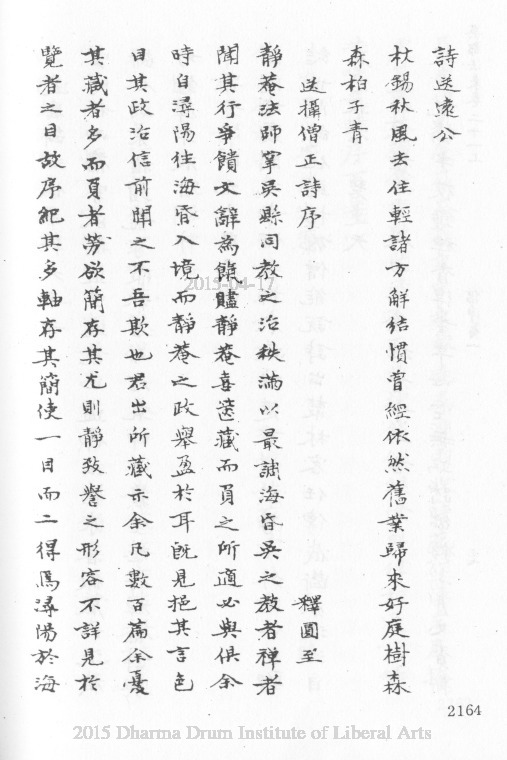 詩送遠公
杖錫秋風去住輕諸方解結慣曾經依然舊業歸來好庭樹森
森柏子青
送攝僧正詩序 釋圓至
靜菴法師掌吳縣同教之治秩滿以最調海昏吳之教者禪者
聞其行爭饋文辭為餘贐靜菴喜篋藏而負之所適必與俱余
時自潯陽往海昏入境而靜菴之政舉盈於耳旣見挹其言色
目其政治信前聞之不吾欺也君出所藏示余凡數百篇余憂
其藏者多而負者勞欲簡存其尤則靜致譽之形容不詳見於
覽者之目故序紀其多軸存其簡使一目而二得焉潯陽於海
2015-04-17
2164
2015 Dharma Drum Institute of Liberal Arts